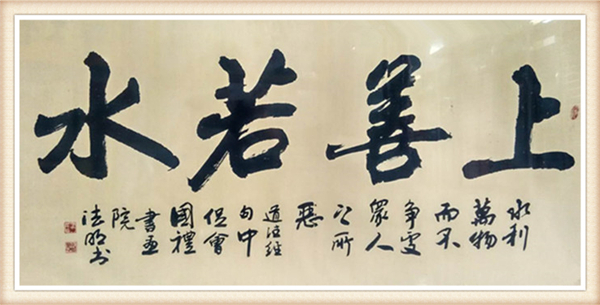 上善若水
水利
萬物
而不
争處
衆人
之所
惡
道德經
句中
促會
國禮
書画
院
法明书